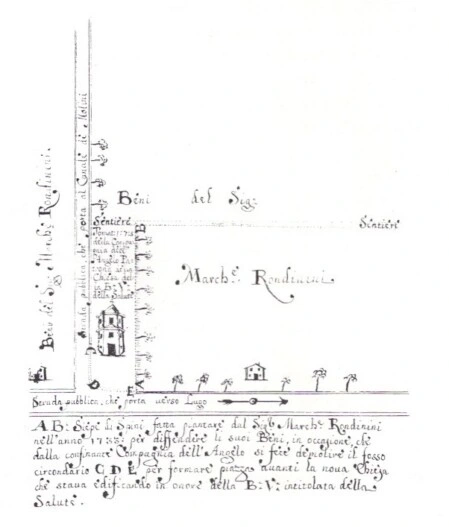 Beni del Sig.e March.e Rondinini.
Strada pubblica, che porta al Canale di Molini
Beni del Sig.e
Sentiere
B
Sentiere
della Compa-
gnia dell'
Angelo
Chiesa del
la B: V:
della Salute
March.e Rondinini
D
C
E
A
Strada pubblica, che porta verso Lugo
A B: Siepe di Spini fatta piantare dal Sig.e March.e Rondinini
nell'anno 1733: per diffendere li suoi Beni, in occasione, che
dalla confinante Compagnia dell'Angelo si fece demolire il fosso
circondario C D E per formare piazza avanti la nova Chiesa
che stava edificando in onore della B: V: intitolata della
Salute.